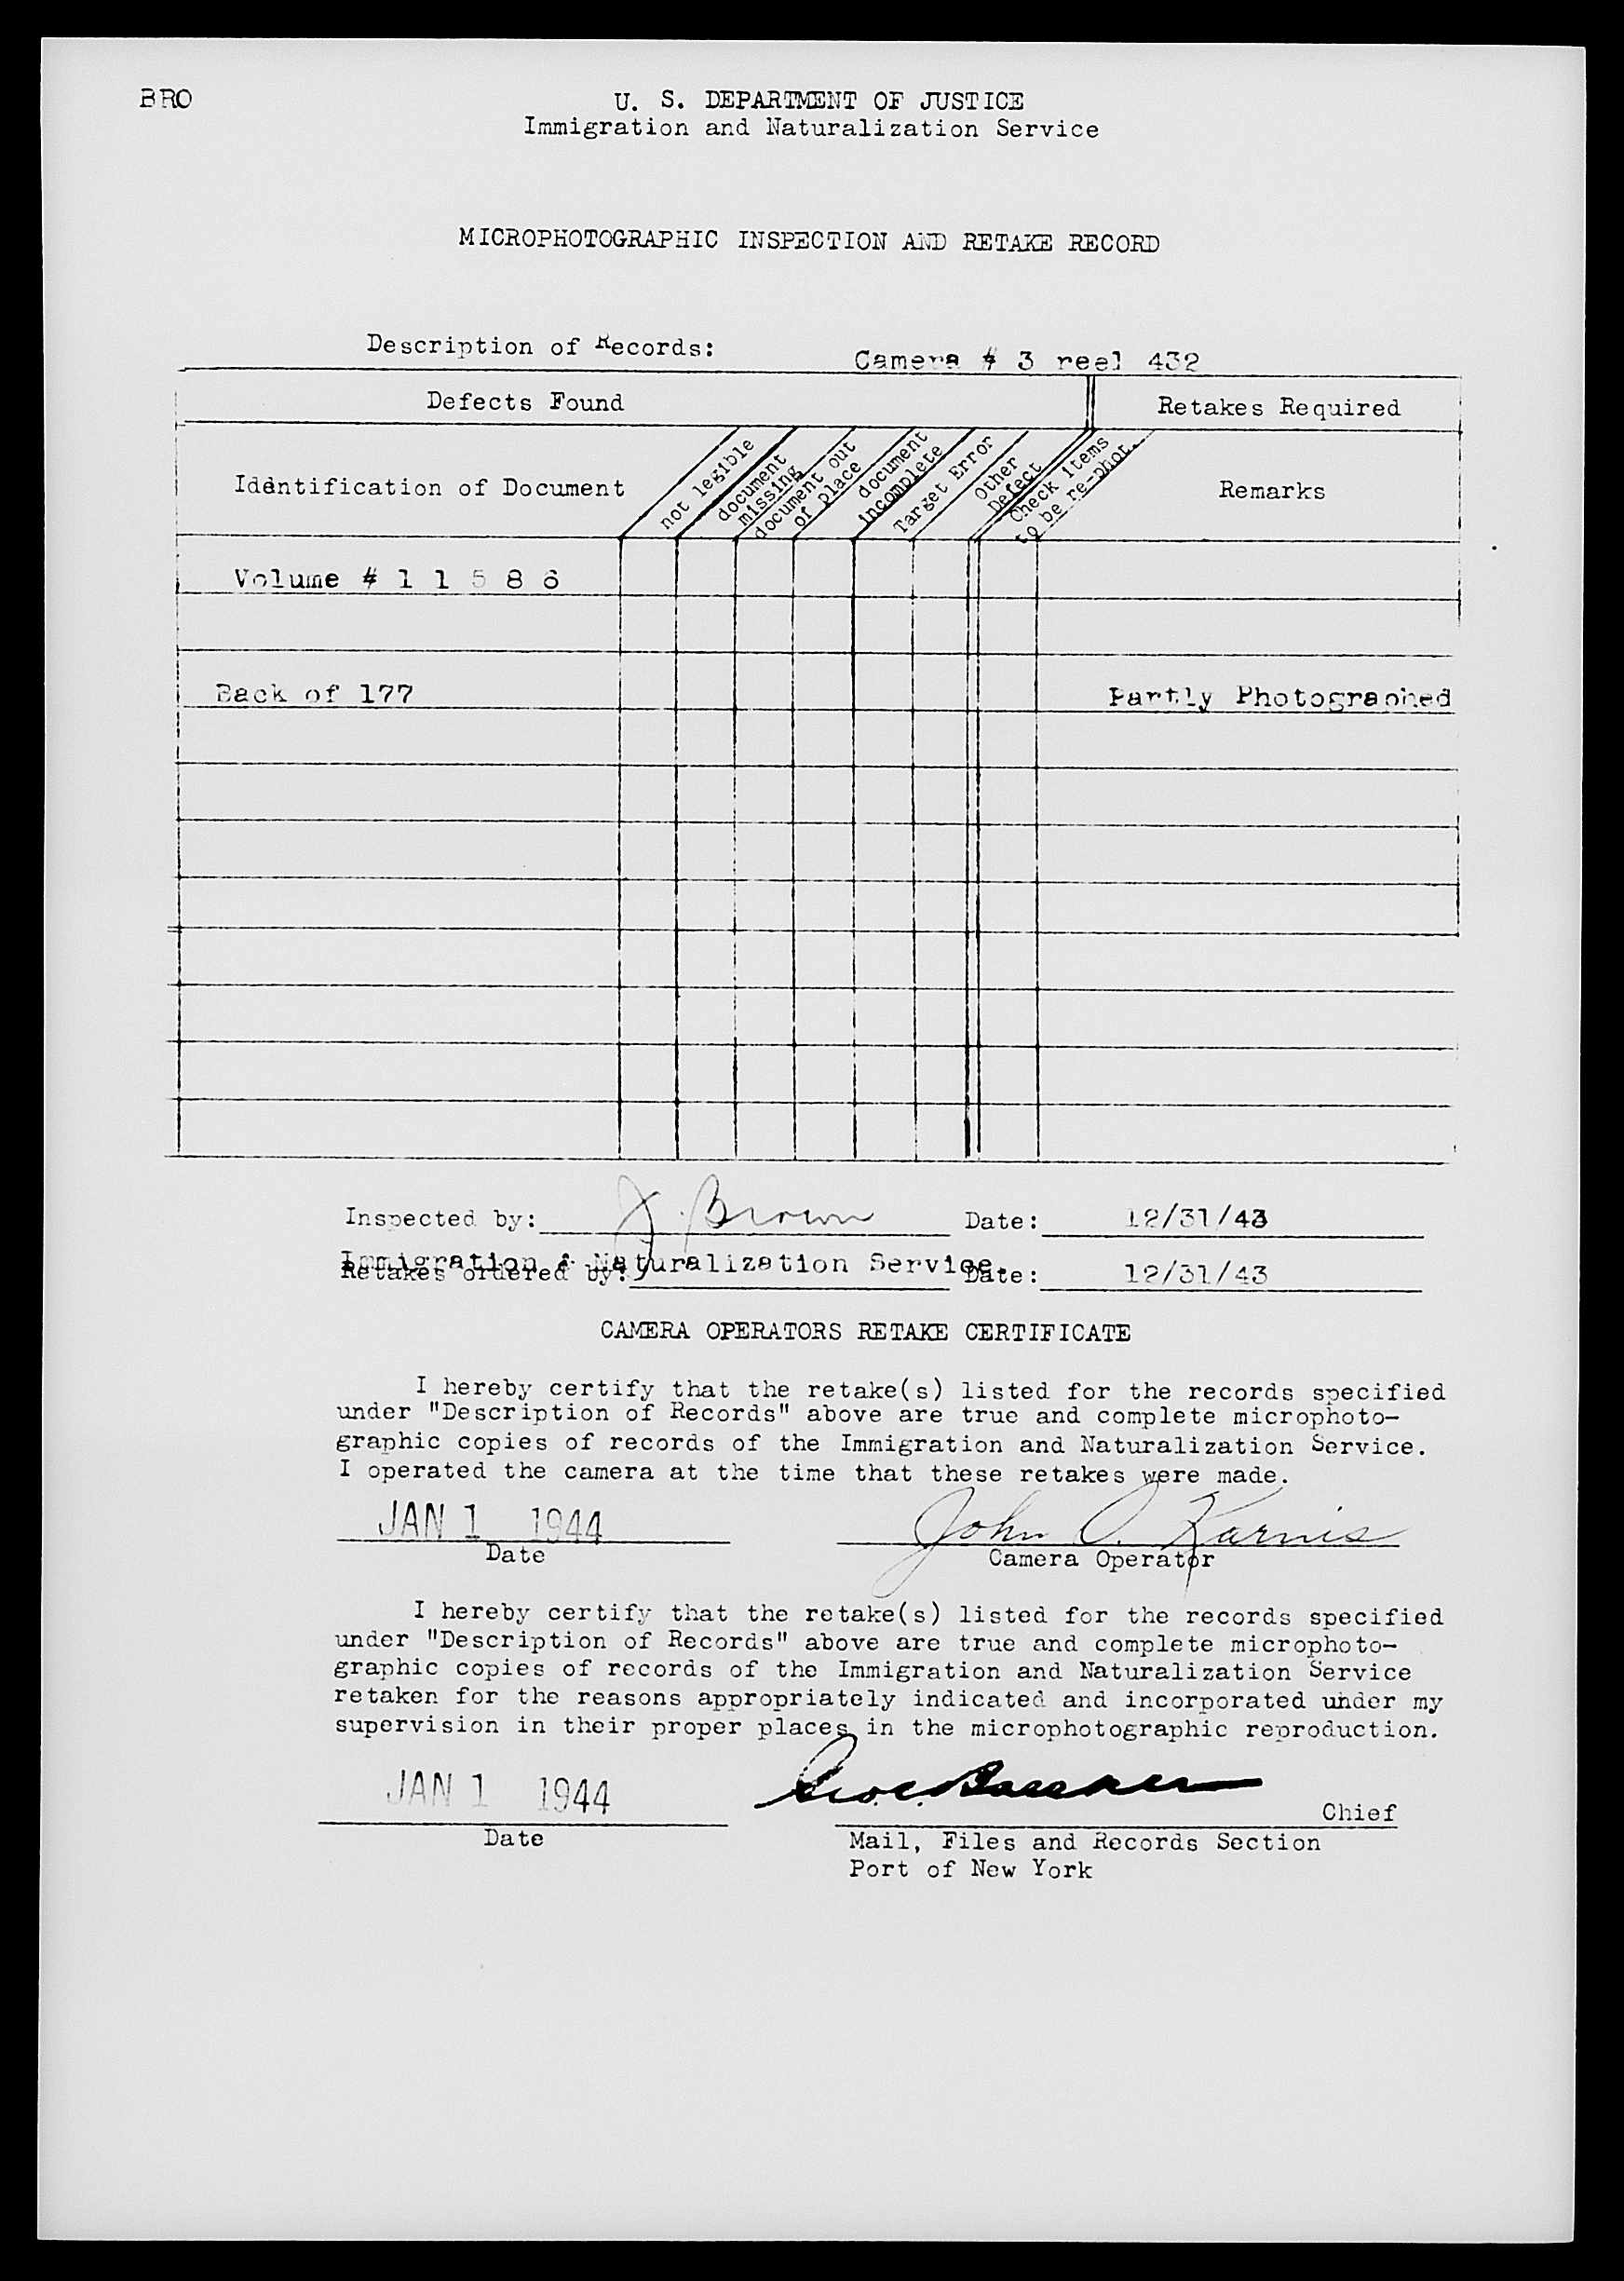 BRO
U. S. DEPARTMENT OF JUSTICE
Immigration and Naturalization Service
MICROPHOTOGRAPHIC INSPECTION AND RETAKE RECORD
Description of Records: Camera # 3 reel 432
Defects Found Retakes Required
Identification of Document
not legible
document missing
document out of place
document incomplete
Target Error
Other Defect
Check items to be re-phot.
Remarks
Volume # 1 1 5 8 6
Back of 177 Partly Photographed
Inspected by: J. Brown Date: 12/31/43
Immigration & Naturalization Service.
Retakes ordered by: Date: 12/31/43
CAMERA OPERATORS RETAKE CERTIFICATE
I hereby certify that the retake(s) listed for the records specified
under "Description of Records" above are true and complete microphoto-
graphic copies of records of the Immigration and Naturalization Service.
I operated the camera at the time that these retakes were made.
JAN 1 1944 John O. Karnis
Date Camera Operator
I hereby certify that the retake(s) listed for the records specified
under "Description of Records" above are true and complete microphoto-
graphic copies of records of the Immigration and Naturalization Service
retaken for the reasons appropriately indicated and incorporated under my
supervision in their proper places in the microphotographic reproduction.
JAN 1 1944
Chief
Date Mail, Files and Records Section
Port of New York